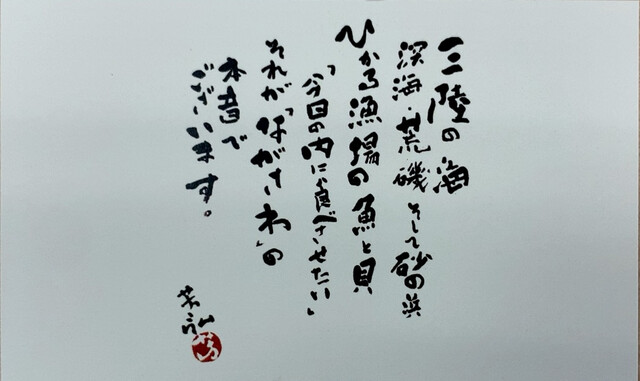 三陸の海
深海・荒磯そして砂の浜
ひかる漁場の魚と貝
「今日の内に食べさせたい」
それが「ながさわ」の
本音で
ございます。